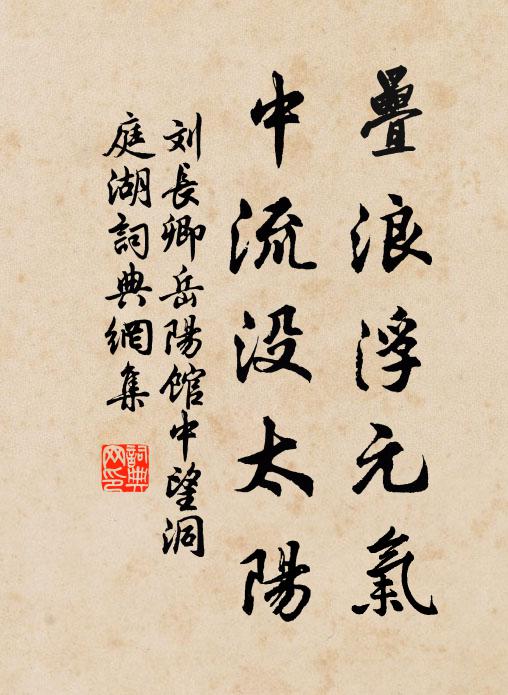 疊浪浮元氣
中流没太陽
刘長卿岳陽館中望洞
庭湖詞典網集
詞典
网印